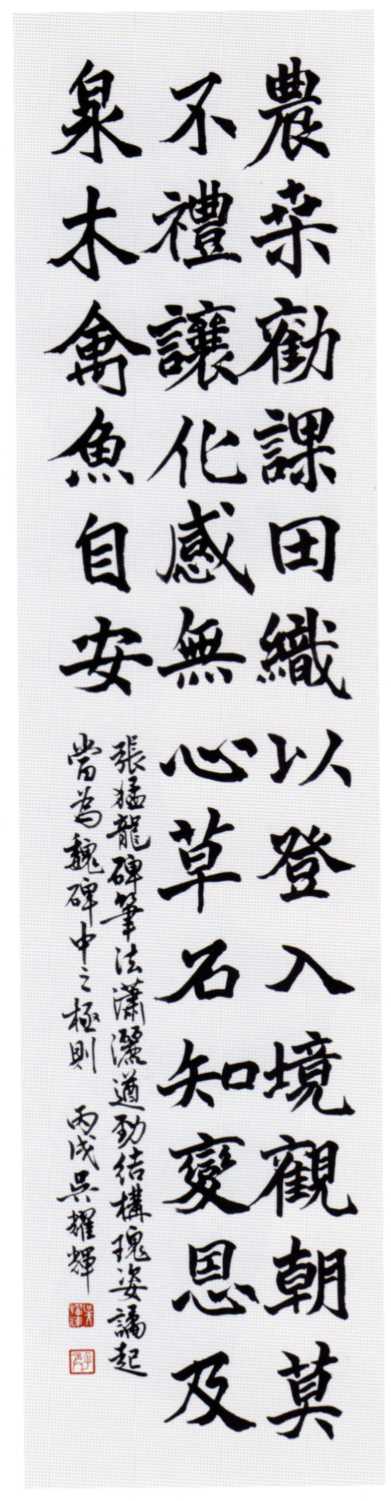 農桒勸課田織以登入境觀朝莫
不禮讓化感無心草石知變恩及
泉木禽魚自安
張猛龍碑筆法瀟灑遒勁結構瑰姿譎起
當為魏碑中之極則 丙戌吳耀輝